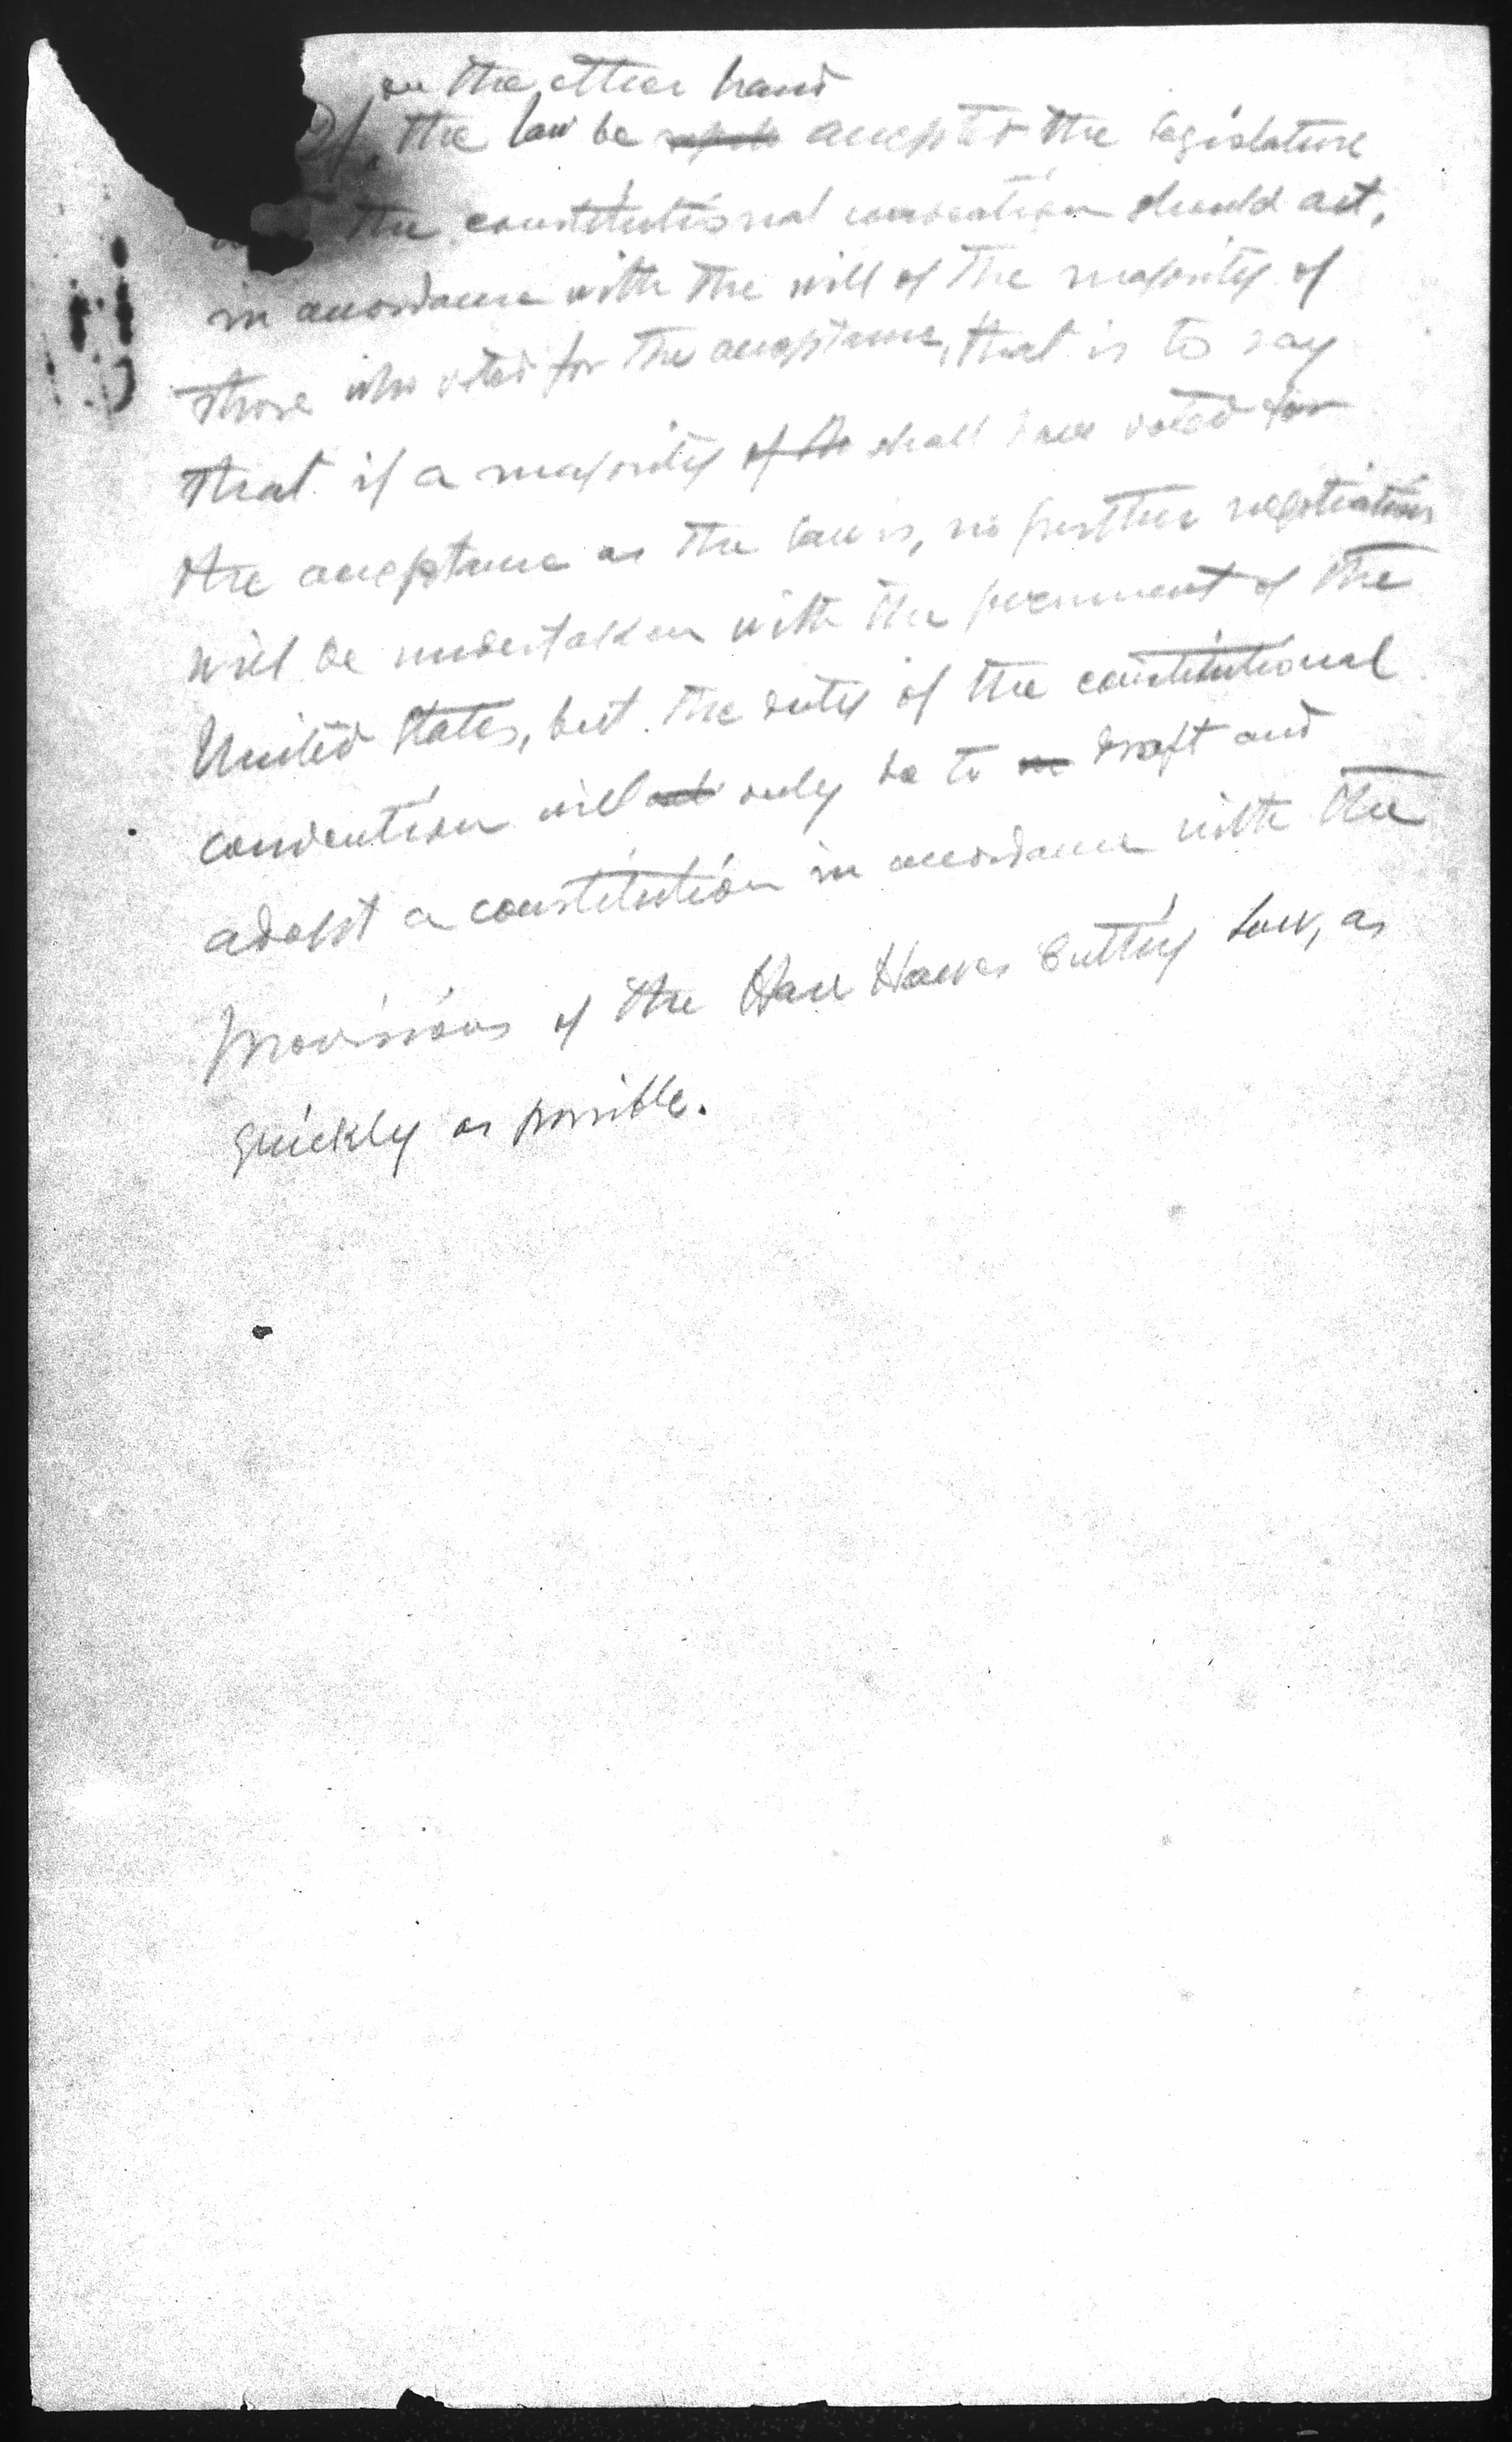 on the other hand
If, the law be accepted the legislature
the constitutional convention should act,
in accordance with the will of the majority of
those who voted for the acceptance, that is to say
that if a majority of the shall have voted for
the acceptance as the law is, no further negotiations
will be undertaken with the government of the
United States, but the duty of the constitutional
convention will only be to draft and
adopt a constitution in accordance with the
provisions of the Hare Hawes Cutting Law, as
quickly as possible.